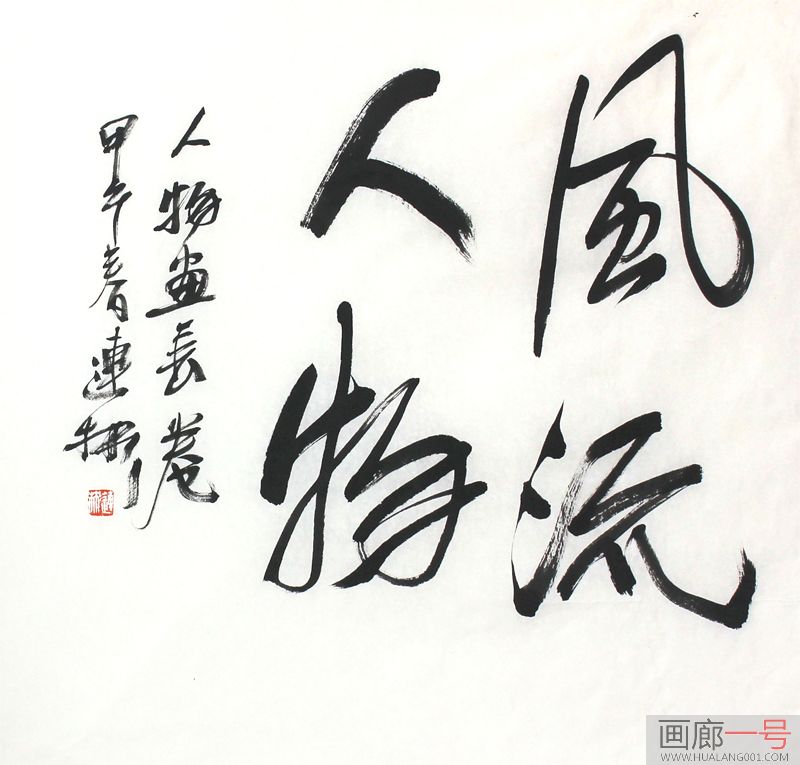 風流
人物
人物畫長卷
甲午春連
画廊一号
WWW.HUALANG001.COM